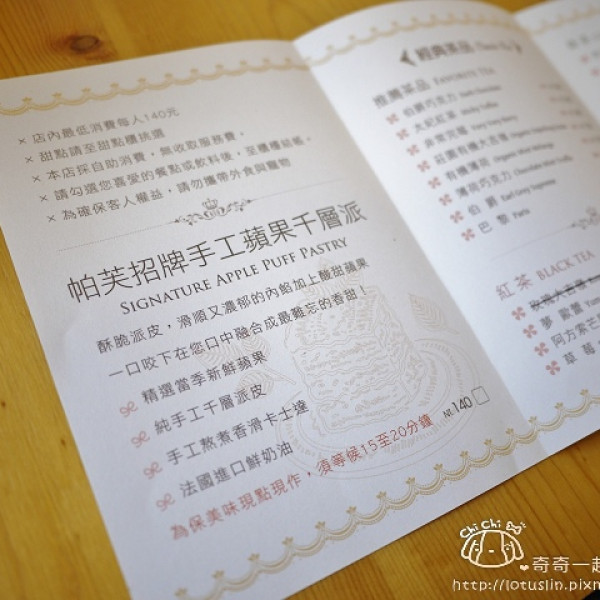 × 店內最低消費每人140元
× 甜點請至甜點櫃挑選
× 本店採自助消費，無收取服務費，
× 請勾選您喜愛的餐點或飲料後，至櫃檯結帳，
× 為確保客人權益，請勿攜帶外食與寵物
帕芙招牌手工蘋果千層派
SIGNATURE APPLE PUFF PASTRY
酥脆派皮，滑順又濃郁的內餡加上酸甜蘋果
一口咬下在您口中融合成最難忘的香甜！
精選當季新鮮蘋果
純手工千層派皮
手工熬煮香滑卡士達
法國進口鮮奶油
NT. 140
為保美味現點現作，須等候15至20分鐘
經典茶品
推薦茶品 FAVORITE TEA
伯爵巧克力
太妃紅茶
非常莓莓
莊園有機大吉嶺
有機薄荷
薄荷巧克力
伯爵 Earl Grey Supreme
巴黎 Paris
紅茶 BLACK TEA
夢
阿方索芒
草莓
Chi Chi
奇奇一起
http://lotuslin.pixn